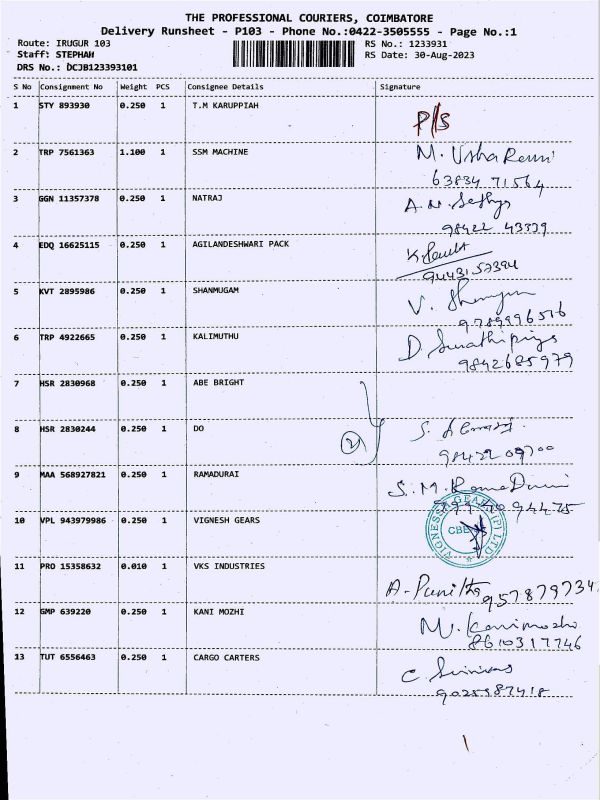 THE PROFESSIONAL COURIERS, COIMBATORE
Delivery Runsheet - P103 - Phone No.:0422-3505555 - Page No.:1
Route: IRUGUR 103 RS No.: 1233931
Staff: STEPHAH RS Date: 30-Aug-2023
DRS No.: DCJB123393101
S No Consignment No Weight PCS Consignee Details Signature
1 STY 893930 0.250 1 T.M KARUPPIAH
P/S
2 TRP 7561363 1.100 1 SSM MACHINE M. Usha Rani
63834 71564
3 GGN 11357378 0.250 1 NATRAJ
98422 43339
4 EDQ 16625115 0.250 1 AGILANDESHWARI PACK
94431 52394
5 KVT 2895986 0.250 1 SHANMUGAM V.
9789996516
6 TRP 4922665 0.250 1 KALIMUTHU D.
9842685979
7 HSR 2830968 0.250 1 ABE BRIGHT
8 HSR 2830244 0.250 1 DO S.
(2)
98422 09700
9 MAA 568927821 0.250 1 RAMADURAI S.M.
94475
10 VPL 943979986 0.250 1 VIGNESH GEARS
CBE
11 PRO 15358632 0.010 1 VKS INDUSTRIES A. Punitha
957879734
12 GMP 639220 0.250 1 KANI MOZHI M. Kanimozhi
8610317746
13 TUT 6556463 0.250 1 CARGO CARTERS C Srinivas
9025587418